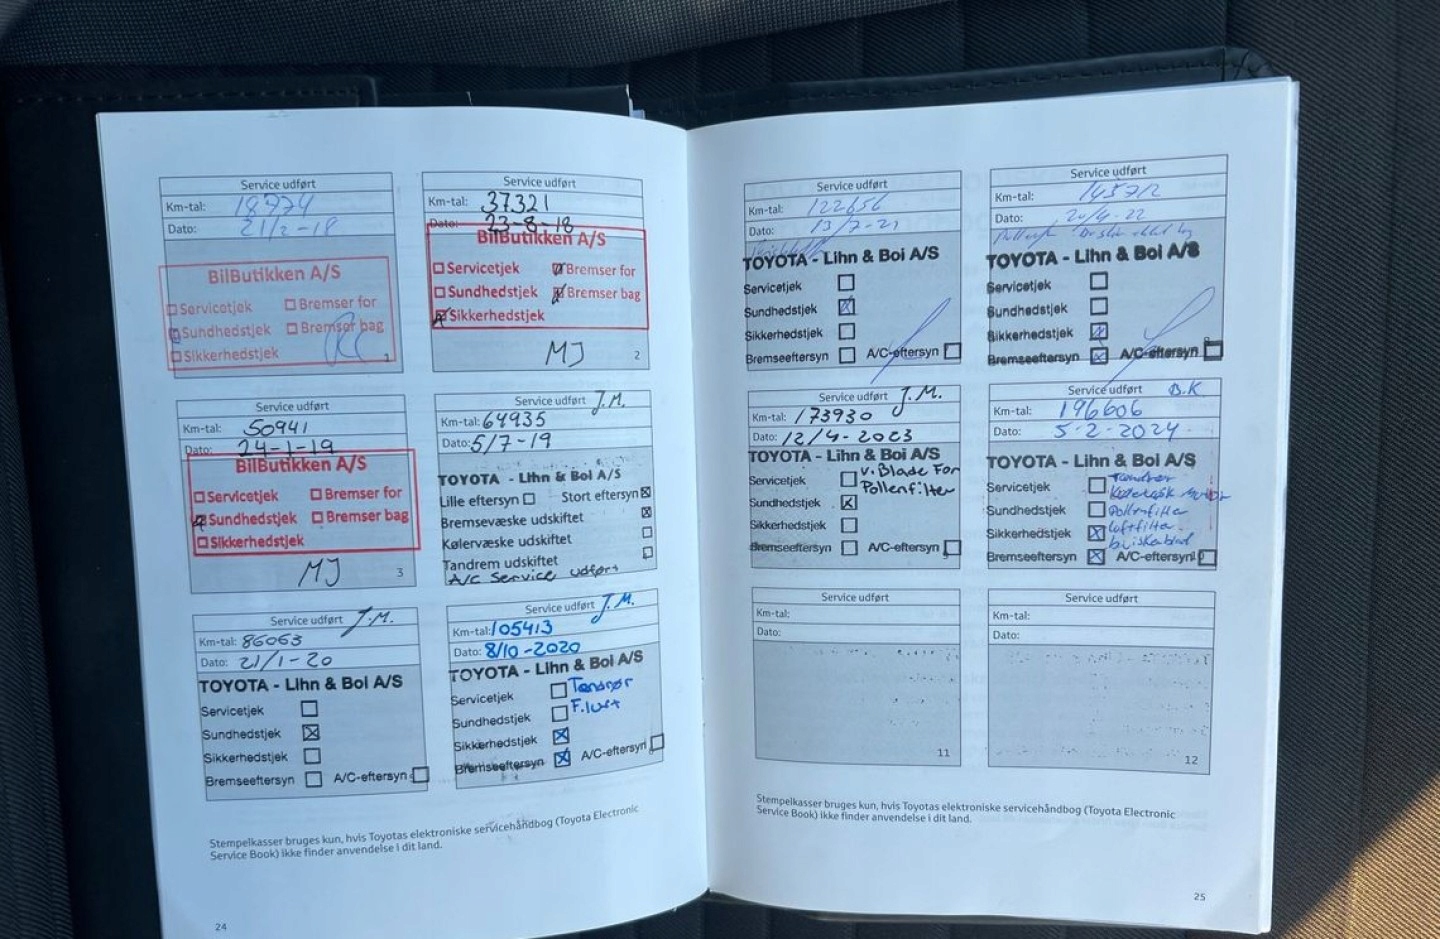 Service udført
Km-tal: 18774
Dato: 21/2-18
BilButikken A/S
Servicetjek Bremser for
Sundhedstjek Bremser bag
Sikkerhedstjek
1
Service udført
Km-tal: 37321
Dato: 23-8-18
BilButikken A/S
Servicetjek Bremser for
Sundhedstjek Bremser bag
Sikkerhedstjek
MJ 2
Service udført
Km-tal: 50941
Dato: 24-1-19
BilButikken A/S
Servicetjek Bremser for
Sundhedstjek Bremser bag
Sikkerhedstjek
MJ 3
Service udført J.M.
Km-tal: 64935
Dato: 5/7-19
TOYOTA - Lihn & Boi A/S
Lille eftersyn Stort eftersyn
Bremsevæske udskiftet
Kølervæske udskiftet
Tandrem udskiftet
A/C Service udført
Service udført J.M.
Km-tal: 86063
Dato: 21/1-20
TOYOTA - Lihn & Boi A/S
Servicetjek
Sundhedstjek
Sikkerhedstjek
Bremseeftersyn A/C-eftersyn
Service udført J.M.
Km-tal: 105413
Dato: 8/10-2020
TOYOTA - Lihn & Boi A/S
Servicetjek Tændrør
Sundhedstjek F.luft
Sikkerhedstjek
Bremseeftersyn A/C-eftersyn
Stempelkasser bruges kun, hvis Toyotas elektroniske servicehåndbog (Toyota Electronic
Service Book) ikke finder anvendelse i dit land.
24
Service udført
Km-tal: 122656
Dato: 13/7-21
TOYOTA - Lihn & Boi A/S
Servicetjek
Sundhedstjek
Sikkerhedstjek
Bremseeftersyn A/C-eftersyn
Service udført
Km-tal: 145712
Dato: 20/4-22
TOYOTA - Lihn & Boi A/S
Servicetjek
Sundhedstjek
Sikkerhedstjek
Bremseeftersyn A/C-eftersyn
Service udført J.M.
Km-tal: 173930
Dato: 12/4-2023
TOYOTA - Lihn & Boi A/S
Servicetjek V.Blade For
Pollenfilter
Sundhedstjek
Sikkerhedstjek
Bremseeftersyn A/C-eftersyn
Service udført B.K
Km-tal: 196606
Dato: 5-2-2024
TOYOTA - Lihn & Boi A/S
Servicetjek Tændrør
Sundhedstjek Pollenfilter
Sikkerhedstjek luftfilter
Bremseeftersyn A/C-eftersyn
Service udført
Km-tal:
Dato:
11
Service udført
Km-tal:
Dato:
12
Stempelkasser bruges kun, hvis Toyotas elektroniske servicehåndbog (Toyota Electronic
Service Book) ikke finder anvendelse i dit land.
25